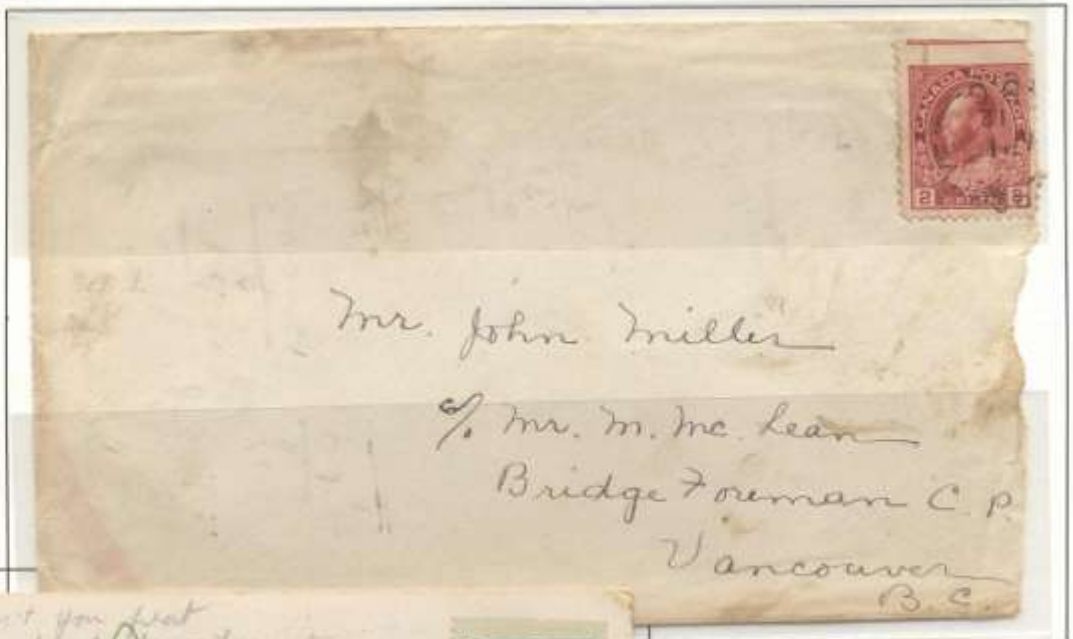 CANADA POSTAGE
2 CENTS 2
Mr. John Miller
c/o Mr. M. Mc. Lean
Bridge Foreman C. P.
Vancouver
B. C.
you